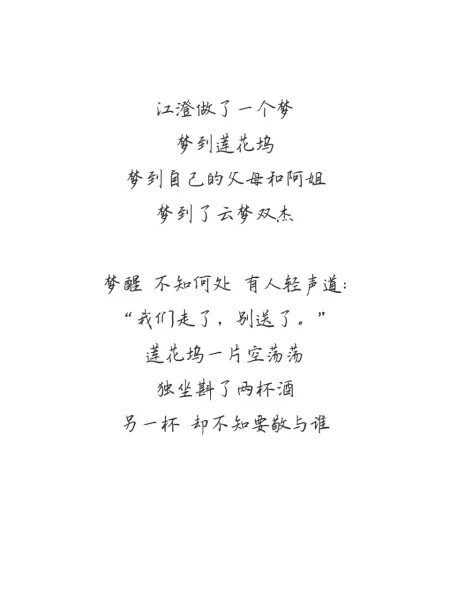 江澄做了一个梦
梦到莲花坞
梦到自己的父母和阿姐
梦到了云梦双杰
梦醒 不知何处 有人轻声道：
“我们走了，别送了。”
莲花坞一片空荡荡
独坐斟了两杯酒
另一杯 却不知要敬与谁